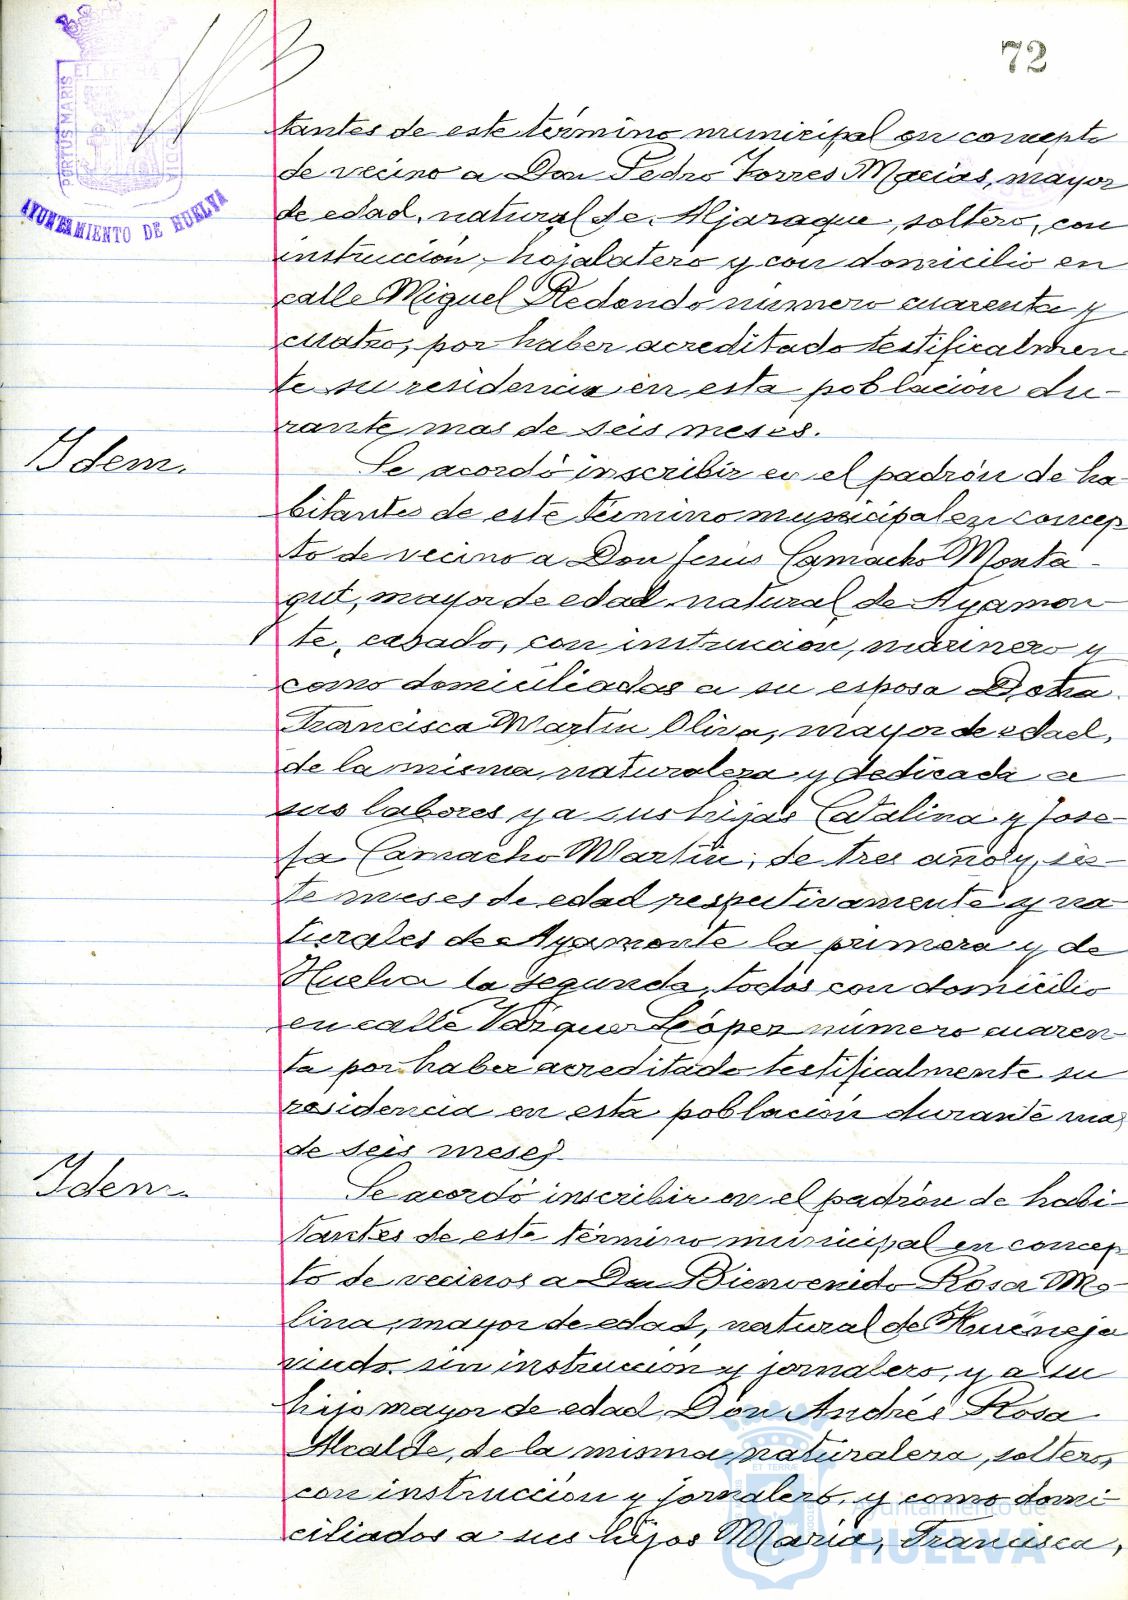 72
PORTUS MARIS
AYUNTAMIENTO DE HUELVA
tantes de este término municipal en concepto
de vecino a Don Pedro Torres Macias, mayor
de edad, natural de Aljaraque, soltero, con
instrucción, hojalatero y con domicilio en
calle Miguel Redondo número cuarenta y
cuatro, por haber acreditado testificalmen
te su residencia en esta población du-
rante mas de seis meses.
Idem.
Se acordó inscribir en el padrón de ha-
bitantes de este término municipal en concep
to de vecino a Don Jesús Camacho Monta-
gut, mayor de edad, natural de Ayamon-
te, casado, con instrucción, marinero y
como domiciliadas a su esposa Doña
Francisca Martín Oliva, mayor de edad,
de la misma naturaleza y dedicada a
sus labores y a sus hijas Catalina y Jose-
fa Camacho Martín, de tres años y sie-
te meses de edad respectivamente y na
turales de Ayamonte la primera y de
Huelva la segunda, todos con domicilio
en calle Vazquez López número cuaren-
ta por haber acreditado testificalmente su
residencia en esta población durante mas
de seis meses.
Idem.
Se acordó inscribir en el padrón de habi-
tantes de este término municipal en concep
to de vecinos a Don Bienvenido Rosa Mo-
lina, mayor de edad, natural de Hueneja
viudo, sin instrucción y jornalero, y a su
hijo mayor de edad Don Andrés Rosa
Alcalde, de la misma naturaleza, soltero,
con instrucción y jornalero, y como domi-
ciliados a sus hijos María, Francisca,
Ayuntamiento de
HUELVA